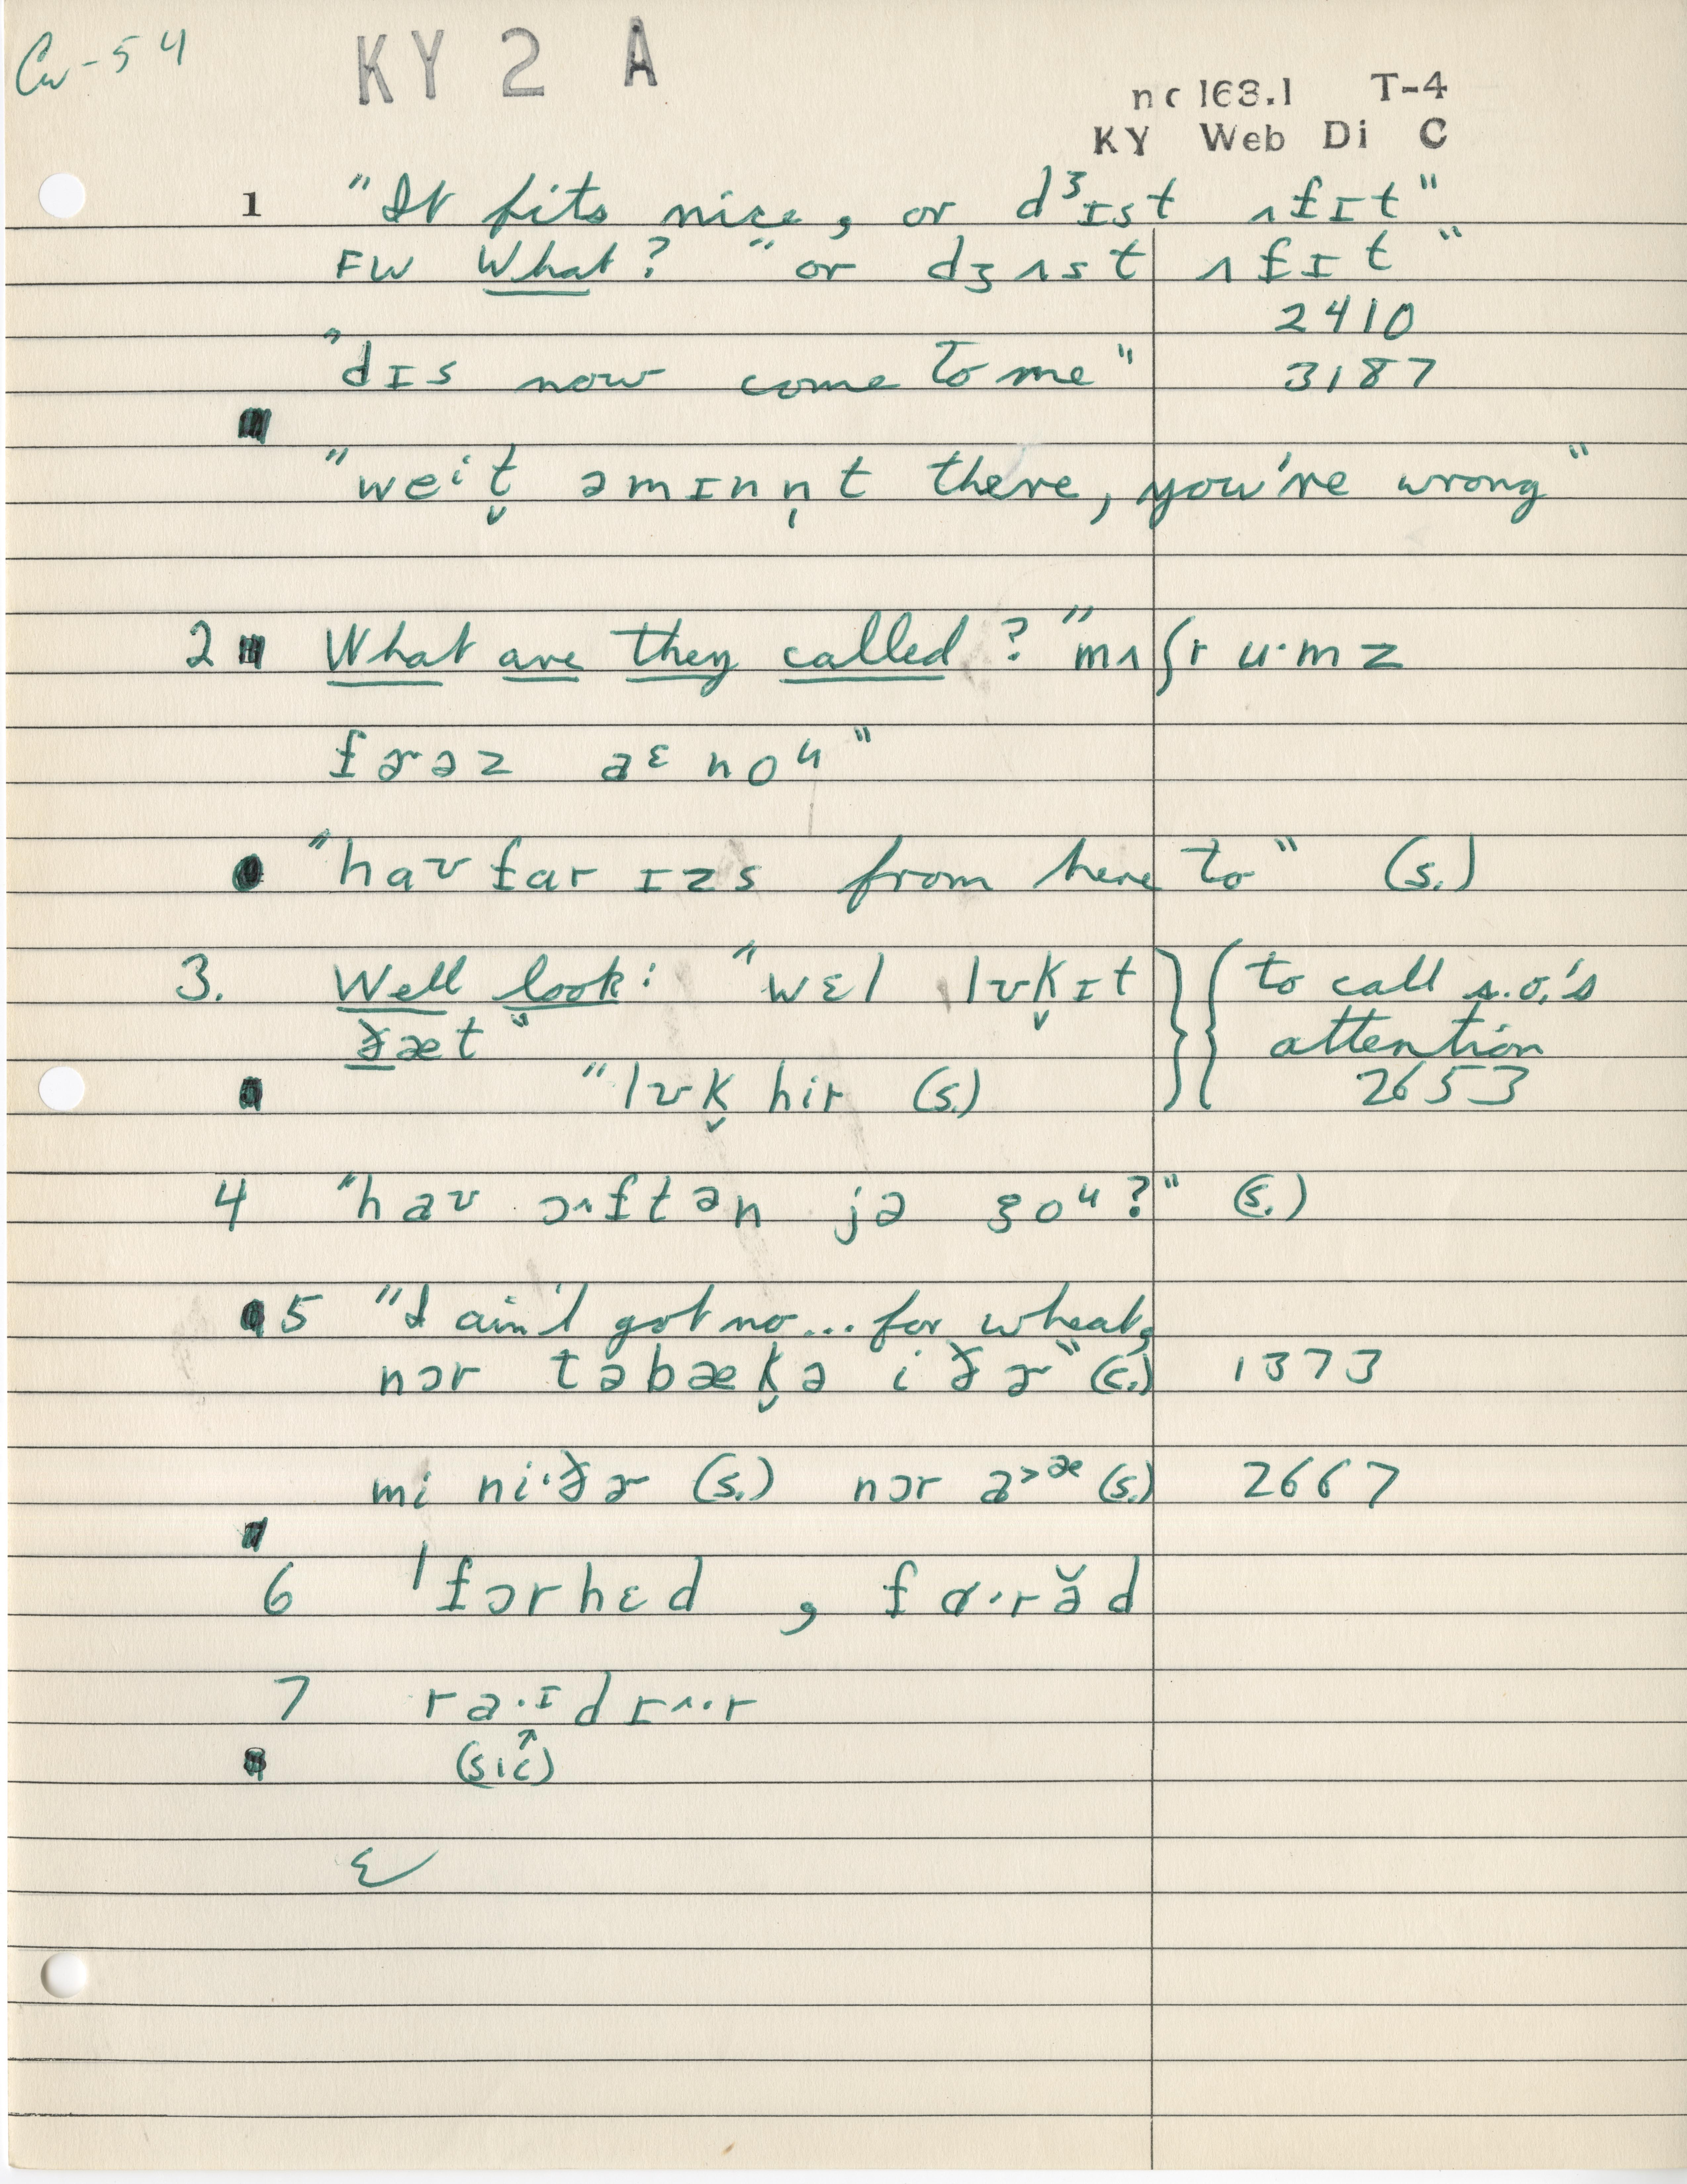 Cw-54 KY 2 A
nc 163.1 T-4
KY Web Di C
1 "It fits nice, or dᶾɪst ʌfɪt"
FW What? "or dʒʌst ʌfɪt"
2410
"dɪs now come to me" 3187
"weⁱt̬ əmɪnn̩t there, you're wrong"
2 What are they called? "mʌʃruˑmz
fɚəz aᵋnoᵘ"
"haʊfar ɪzs from here to" (s.)
3. Well look: "wɛl lʊk̬ɪt to call s.o.'s
ðæt" attention
"lʊk̬ hir (s.) 2653
4 "haʊ ɔ˄ftən jə goᵘ?" (s.)
5 "I ain't got no... for wheat,
nɔr təbæk̬ə iðɚ" (c.) 1373
mi niˑðɚ (s.) nɔr a˃ᵆ (s.) 2667
6 ˈfɔrhɛd, fɑˑrə̆d
7 raˑɪdɪ˄ˑr
(sic)
ε